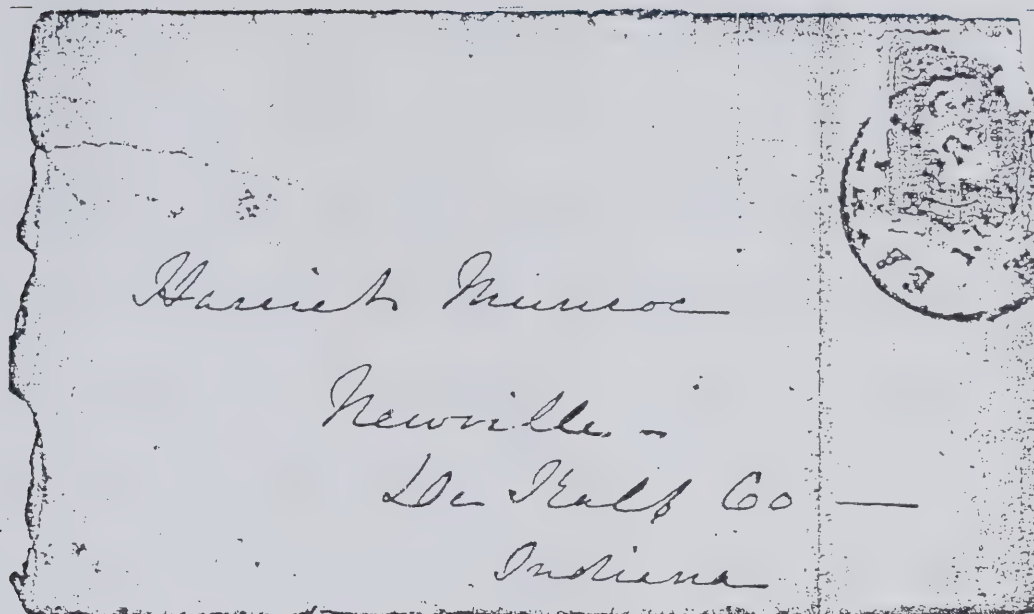 Harriet Munroe
Newville -
De Kalb Co —
Indiana